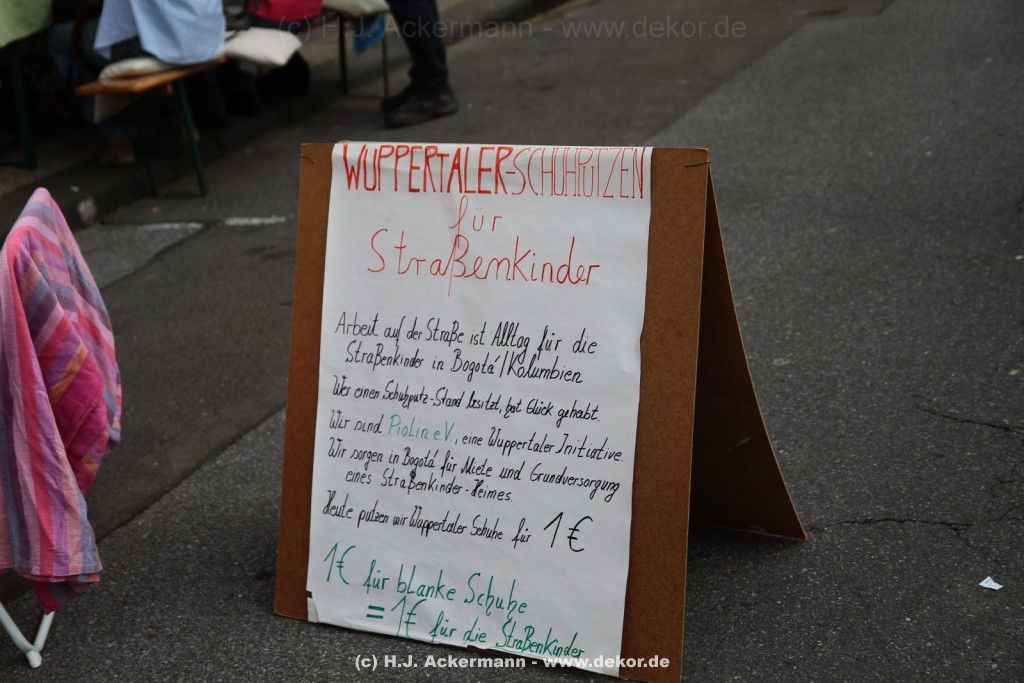 (c) H.J. Ackermann - www.dekor.de
WUPPERTALER-SCHUHPUTZEN
für
Straßenkinder
Arbeit auf der Straße ist Alltag für die
Straßenkinder in Bogotá/Kolumbien
Wer einen Schuhputz-Stand besitzt, hat Glück gehabt.
Wir sind Piolin e.V., eine Wuppertaler Initiative.
Wir sorgen in Bogotá für Miete und Grundversorgung
eines Straßenkinder-Heimes.
Heute putzen wir Wuppertaler Schuhe für 1€
1€ für blanke Schuhe
= 1€ für die Straßenkinder
(c) H.J. Ackermann - www.dekor.de